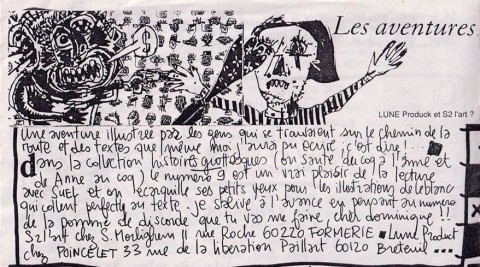 Les aventures
LUNE Produck et S2 l'art ?
Une aventure illustrée par les gens qui se trouvaient sur le chemin de la
route et des textes que même moi j'aurai pu ecrire c'est dire !...
dans la collection histoires grotesques (on saute du coq à l'âme et
de Anne au coq) le numero 9 est un vrai plaisir de la lecture
avec SUEL et on écarquille ses petits yeux pour les illustrations de leblanc
qui collent perfectly au texte. je salive à l'avance en pensant au numero
de la pomme de discorde que tu vas me faire, cher dominique !!
S2 l'art chez S. Morlighem 11 rue Roche 60220 FORMERIE Lune Product
chez POINCELET 33 rue de la libération Paillart 60120 Breteuil ...